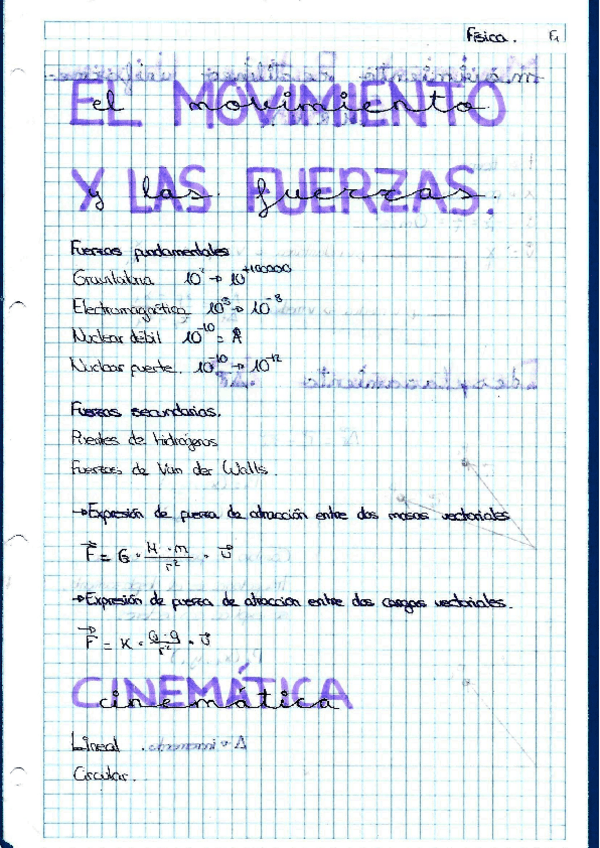 Física. F1
EL MOVIMIENTO
el movimiento
Y LAS FUERZAS.
y las fuerzas.
Fuerzas fundamentales
Gravitatoria 10 → 10^+100000
Electromagnética 10^8 → 10^-8
Nuclear débil 10^-10 = Å
Nuclear fuerte. 10^-10 → 10^-12
Fuerzas secundarias.
Puentes de hidrógenos
Fuerzas de Van der Walls.
→ Expresión de fuerza de atracción entre dos masas vectoriales
F⃗ = G · M · m / r² · u⃗
→ Expresión de fuerza de atracción entre dos cargas vectoriales.
F⃗ = K · Q · q / r² · u⃗
CINEMÁTICA
cinemática
Lineal.
Circular.